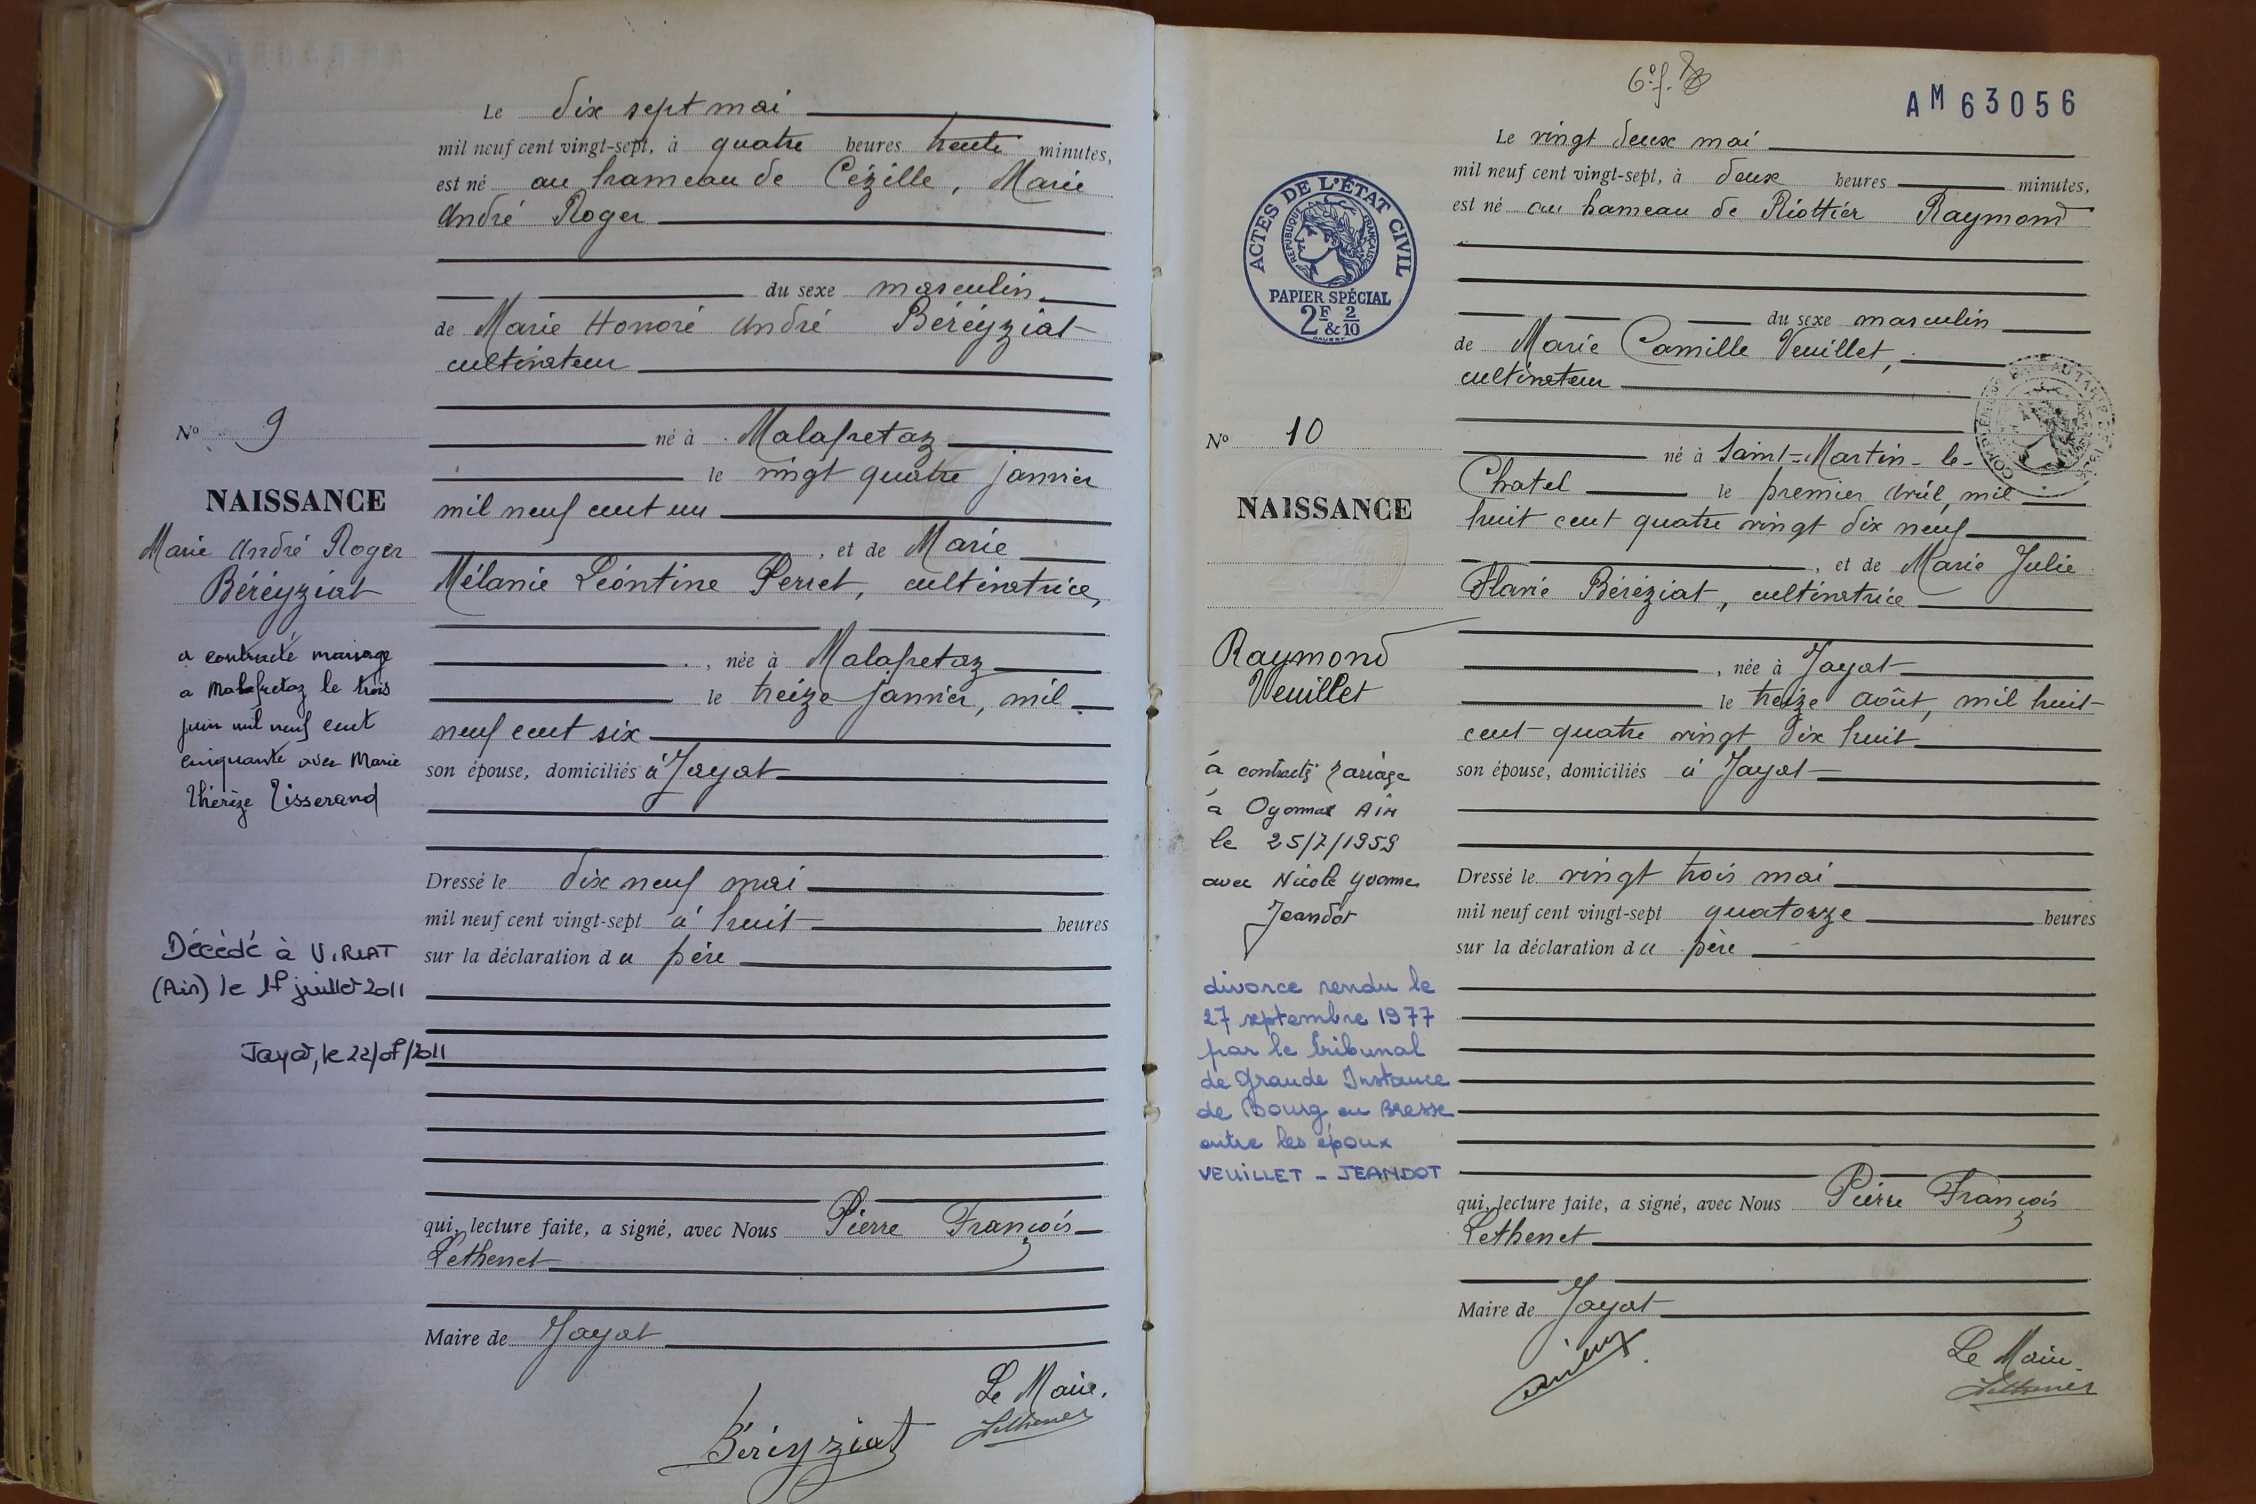 Le dix sept mai
mil neuf cent vingt-sept, à quatre heures trente minutes,
est né au hameau de Cézille, Marie
André Roger
du sexe masculin
de Marie Honoré André Béréyziat
cultivateur
né à Malafretaz
le vingt quatre janvier
mil neuf cent un
, et de Marie
Mélanie Léontine Perret, cultivatrice,
, née à Malafretaz
le treize janvier, mil
neuf cent six
son épouse, domiciliés à Jayat
Dressé le dix neuf mai
mil neuf cent vingt-sept à huit heures
sur la déclaration du père
qui, lecture faite, a signé, avec Nous Pierre François
Lethenet
Maire de Jayat
Le Maire.
Lethenet
Béréyziat
No 9
NAISSANCE
Marie André Roger
Béréyziat
a contracté mariage
a Malafretaz le trois
juin mil neuf cent
cinquante avec Marie
Thérèze Tisserand
Décédé à VIRIAT
(Ain) le 17 juillet 2011
Jayat, le 22/07/2011
6e f.
AM 63056
Le vingt deux mai
mil neuf cent vingt-sept, à deux heures minutes,
est né au hameau de Riottier Raymond
du sexe masculin
de Marie Camille Veuillet,
cultivateur
né à Saint-Martin-le-
Chatel le premier avril, mil
huit cent quatre vingt dix neuf
, et de Marie Julie
Flavie Béréziat, cultivatrice
, née à Jayat
le treize août, mil huit
cent quatre vingt dix huit
son épouse, domiciliés à Jayat
Dressé le vingt trois mai
mil neuf cent vingt-sept quatorze heures
sur la déclaration du père
qui, lecture faite, a signé, avec Nous Pierre François
Lethenet
Maire de Jayat
Le Maire.
Lethenet
ACTES DE L'ÉTAT CIVIL
RÉPUBLIQUE FRANÇAISE
PAPIER SPÉCIAL
2F & 2/10
No 10
NAISSANCE
Raymond
Veuillet
à contracté mariage
à Oyonnax AIN
le 25/7/1959
avec Nicole Yvonne
Jeandot
divorce rendu le
27 septembre 1977
par le tribunal
de Grande Instance
de Bourg en Bresse
entre les époux
VEUILLET - JEANDOT